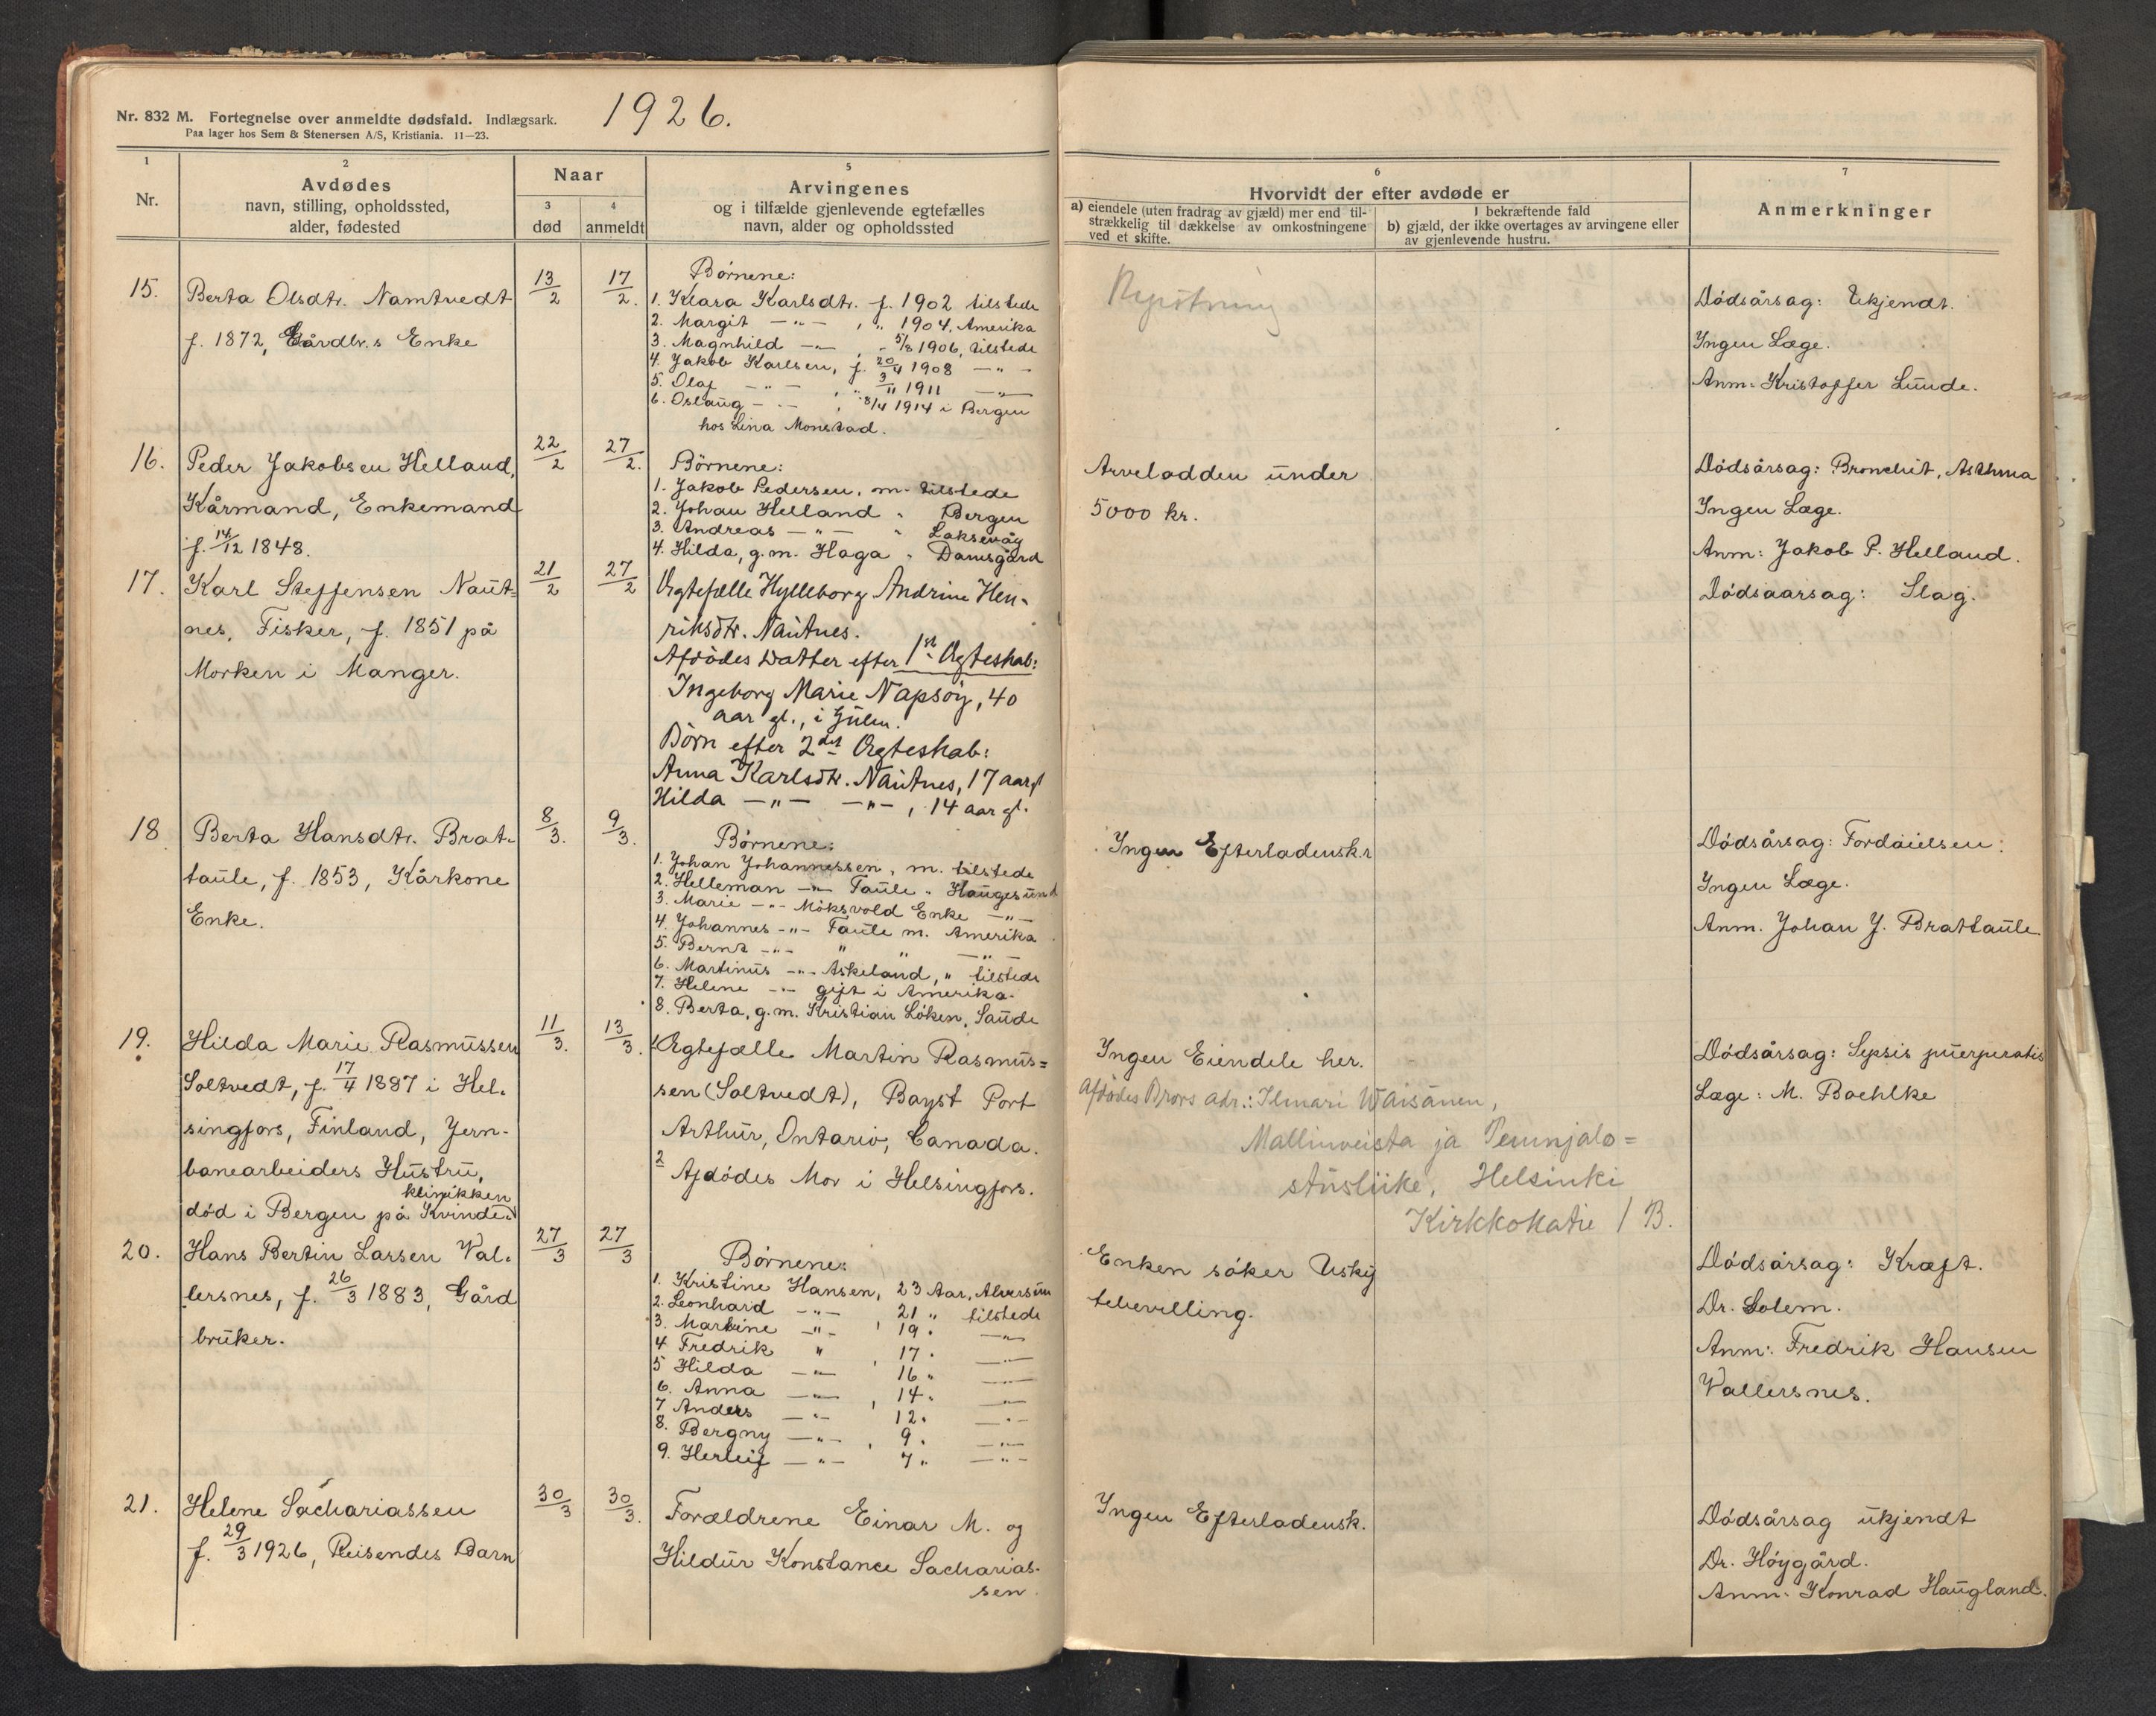 Nr. 832 M. Fortegnelse over anmeldte dødsfald. Indlægsark.
Paa lager hos Sem & Stenersen A/S, Kristiania. 11—23.
1926.
1
Nr.
2
Avdødes
navn, stilling, opholdssted,
alder, fødested
Naar
3
død
4
anmeldt
5
Arvingenes
og i tilfælde gjenlevende egtefælles
navn, alder og opholdssted
6
Hvorvidt der efter avdøde er
a) eiendele (uten fradrag av gjæld) mer end til-
strækkelig til dækkelse av omkostningene
ved et skifte.
I bekræftende fald
b) gjæld, der ikke overtages av arvingene eller
av gjenlevende hustru.
7
Anmerkninger
15.
Berta Olsdtr. Namtvedt
f. 1872, Gårdbr.s Enke
13/2
17/2.
Børnene:
1. Klara Karlsdtr. f. 1902 tilstede
2. Margit —"— , " 1904, Amerika
3. Magnhild —"— , " 5/8 1906, tilstede
4. Jakob Karlsen, f. 20/4 1908 —"—
5. Olaf —"— , " 3/11 1911 —"—
6. Oslaug —"— , 8/4 1914 i Bergen
hos Lina Monstad.
Dødsårsag: Ukjendt.
Ingen Læge.
Anm: Kristoffer Lunde.
16.
Peder Jakobsen Helland,
Kårmand, Enkemand
f. 14/12 1848.
22/2
27/2.
Børnene:
1. Jakob Pedersen, m. tilstede
2. Johan Helland " Bergen
3. Andreas —"— " Laksevåg
4. Hilda, g.m. Haga " Damsgård
Arvelodden under
5000 kr.
Dødsårsag: Bronchit, Asthma
Ingen Læge.
Anm: Jakob P. Helland.
17.
Karl Steffensen Naut=
nes, Fisker, f. 1851 på
Morken i Manger.
21/2
27/2
Ægtefælle Hylleborg Andrine Hen-
riksdtr. Nautnes.
Afdødes Datter efter 1st Ægteskab:
Ingeborg Marie Napsøy, 40
aar gl., i Gulen.
Børn efter 2det Ægteskab:
Anna Karlsdtr. Nautnes, 17 aar gl
Hilda —"— —"—, 14 aar gl.
Dødsaarsag: Slag.
18
Berta Hansdtr. Brat-
taule, f. 1853, Kårkone
Enke.
8/3.
9/3.
Børnene:
1. Johan Johannessen, m. tilstede
2. Helleman —"— Taule " Haugesund
3. Marie —"— Möksvold Enke —"—
4. Johannes —"— Taule m. Amerika
5. Bernt —"— " " —"—
6. Martinus —"— Askeland, " tilstede
7. Helene —"— gift i Amerika.
8. Berta, g.m. Kristian Löken, Saude
Ingen Efterladensk.r
Dødsårsag: Fordøielsen.
Ingen Læge.
Anm. Johan J. Brattaule.
19.
Hilda Marie Rasmussen
Soltvedt, f. 17/4 1887 i Hel-
singfors, Finland, Jern-
banearbeiders Hustru,
død i Bergen på Kvinde-
klinikken
11/3.
13/3.
1 Ægtefælle Martin Rasmus=
sen (Soltvedt), Bayst Port
Arthur, Ontario, Canada.
2 Afdødes Mor i Helsingfors.
Ingen Eiendele her.
Afdødes Brors adr.: Ilmari Waisänen,
stusliike, Helsinki
Kirkkokatu 1 B.
Dødsårsag: Sepsis puerperalis
Læge: M. Boehlke
20.
Hans Bertin Larsen Val-
lersnes, f. 26/3 1883, Gård
bruker.
27/3
27/3
Børnene:
1. Kristine Hansen, 23 Aar, Alversun
2. Leonhard —"— 21 " tilstede
3. Martine —"— , 19 " —"—
4 Fredrik " , 17 " —"—
5 Hilda —"— 16 " —"—
6. Anna —"— , 14 " —"—
7 Anders —"— 12 " —"—
8. Bergny —"— , 9 " —"—
9. Herleif —"— 7 " —"—
Enken søker Usky
tebevilling.
Dødsårsag: Kræft.
Dr. Solem.
Anm: Fredrik Hansen
Vallersnes.
21.
Helene Sachariassen
f. 29/3 1926, Reisendes Barn
30/3
30/3.
Forældrene Einar M. og
Hildur Konstance Sacharias-
sen.
Ingen Efterladensk.
Dødsårsag ukjendt
Dr. Höygård.
Anm: Konrad Haugland.